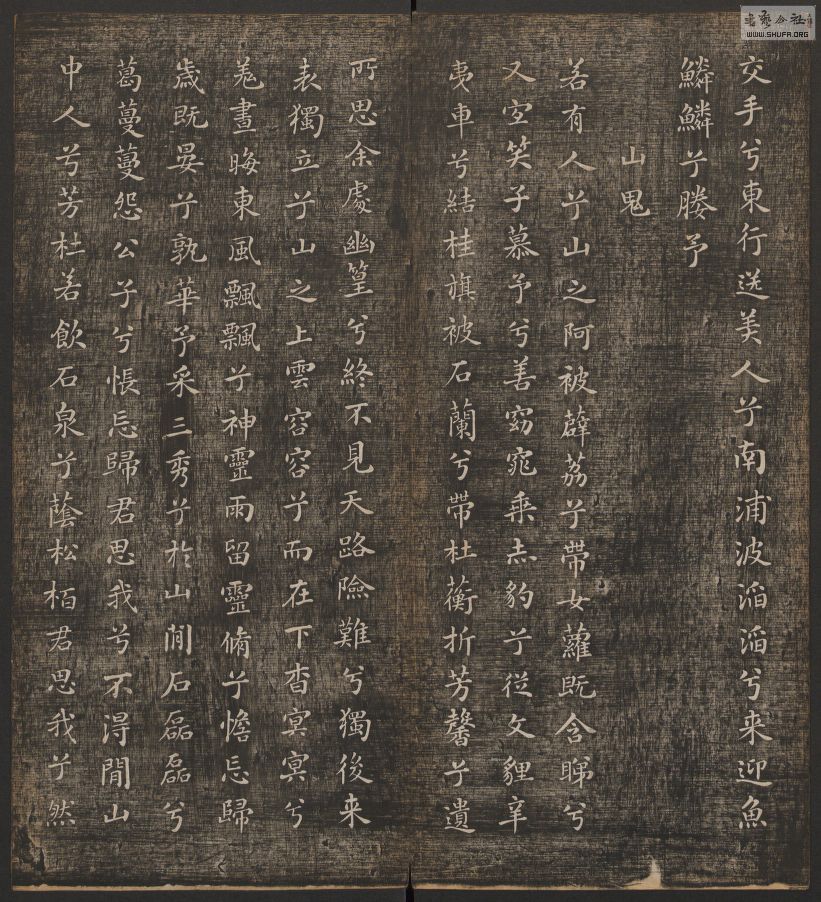 交手兮東行送美人兮南浦波滔滔兮来迎魚
鱗鱗兮媵予
山鬼
若有人兮山之阿被薜荔兮帶女蘿既含睇兮
又宜笑子慕予兮善窈窕乘赤豹兮從文貍辛
夷車兮結桂旗被石蘭兮帶杜蘅折芳馨兮遺
所思余處幽篁兮終不見天路險難兮獨後来
表獨立兮山之上雲容容兮而在下杳冥冥兮
羌晝晦東風飄飄兮神靈雨留靈脩兮憺忘歸
歲既晏兮孰華予采三秀兮於山間石磊磊兮
葛蔓蔓怨公子兮悵忘歸君思我兮不得閒山
中人兮芳杜若飲石泉兮蔭松栢君思我兮然
書藝公社
WWW.SHUFA.ORG